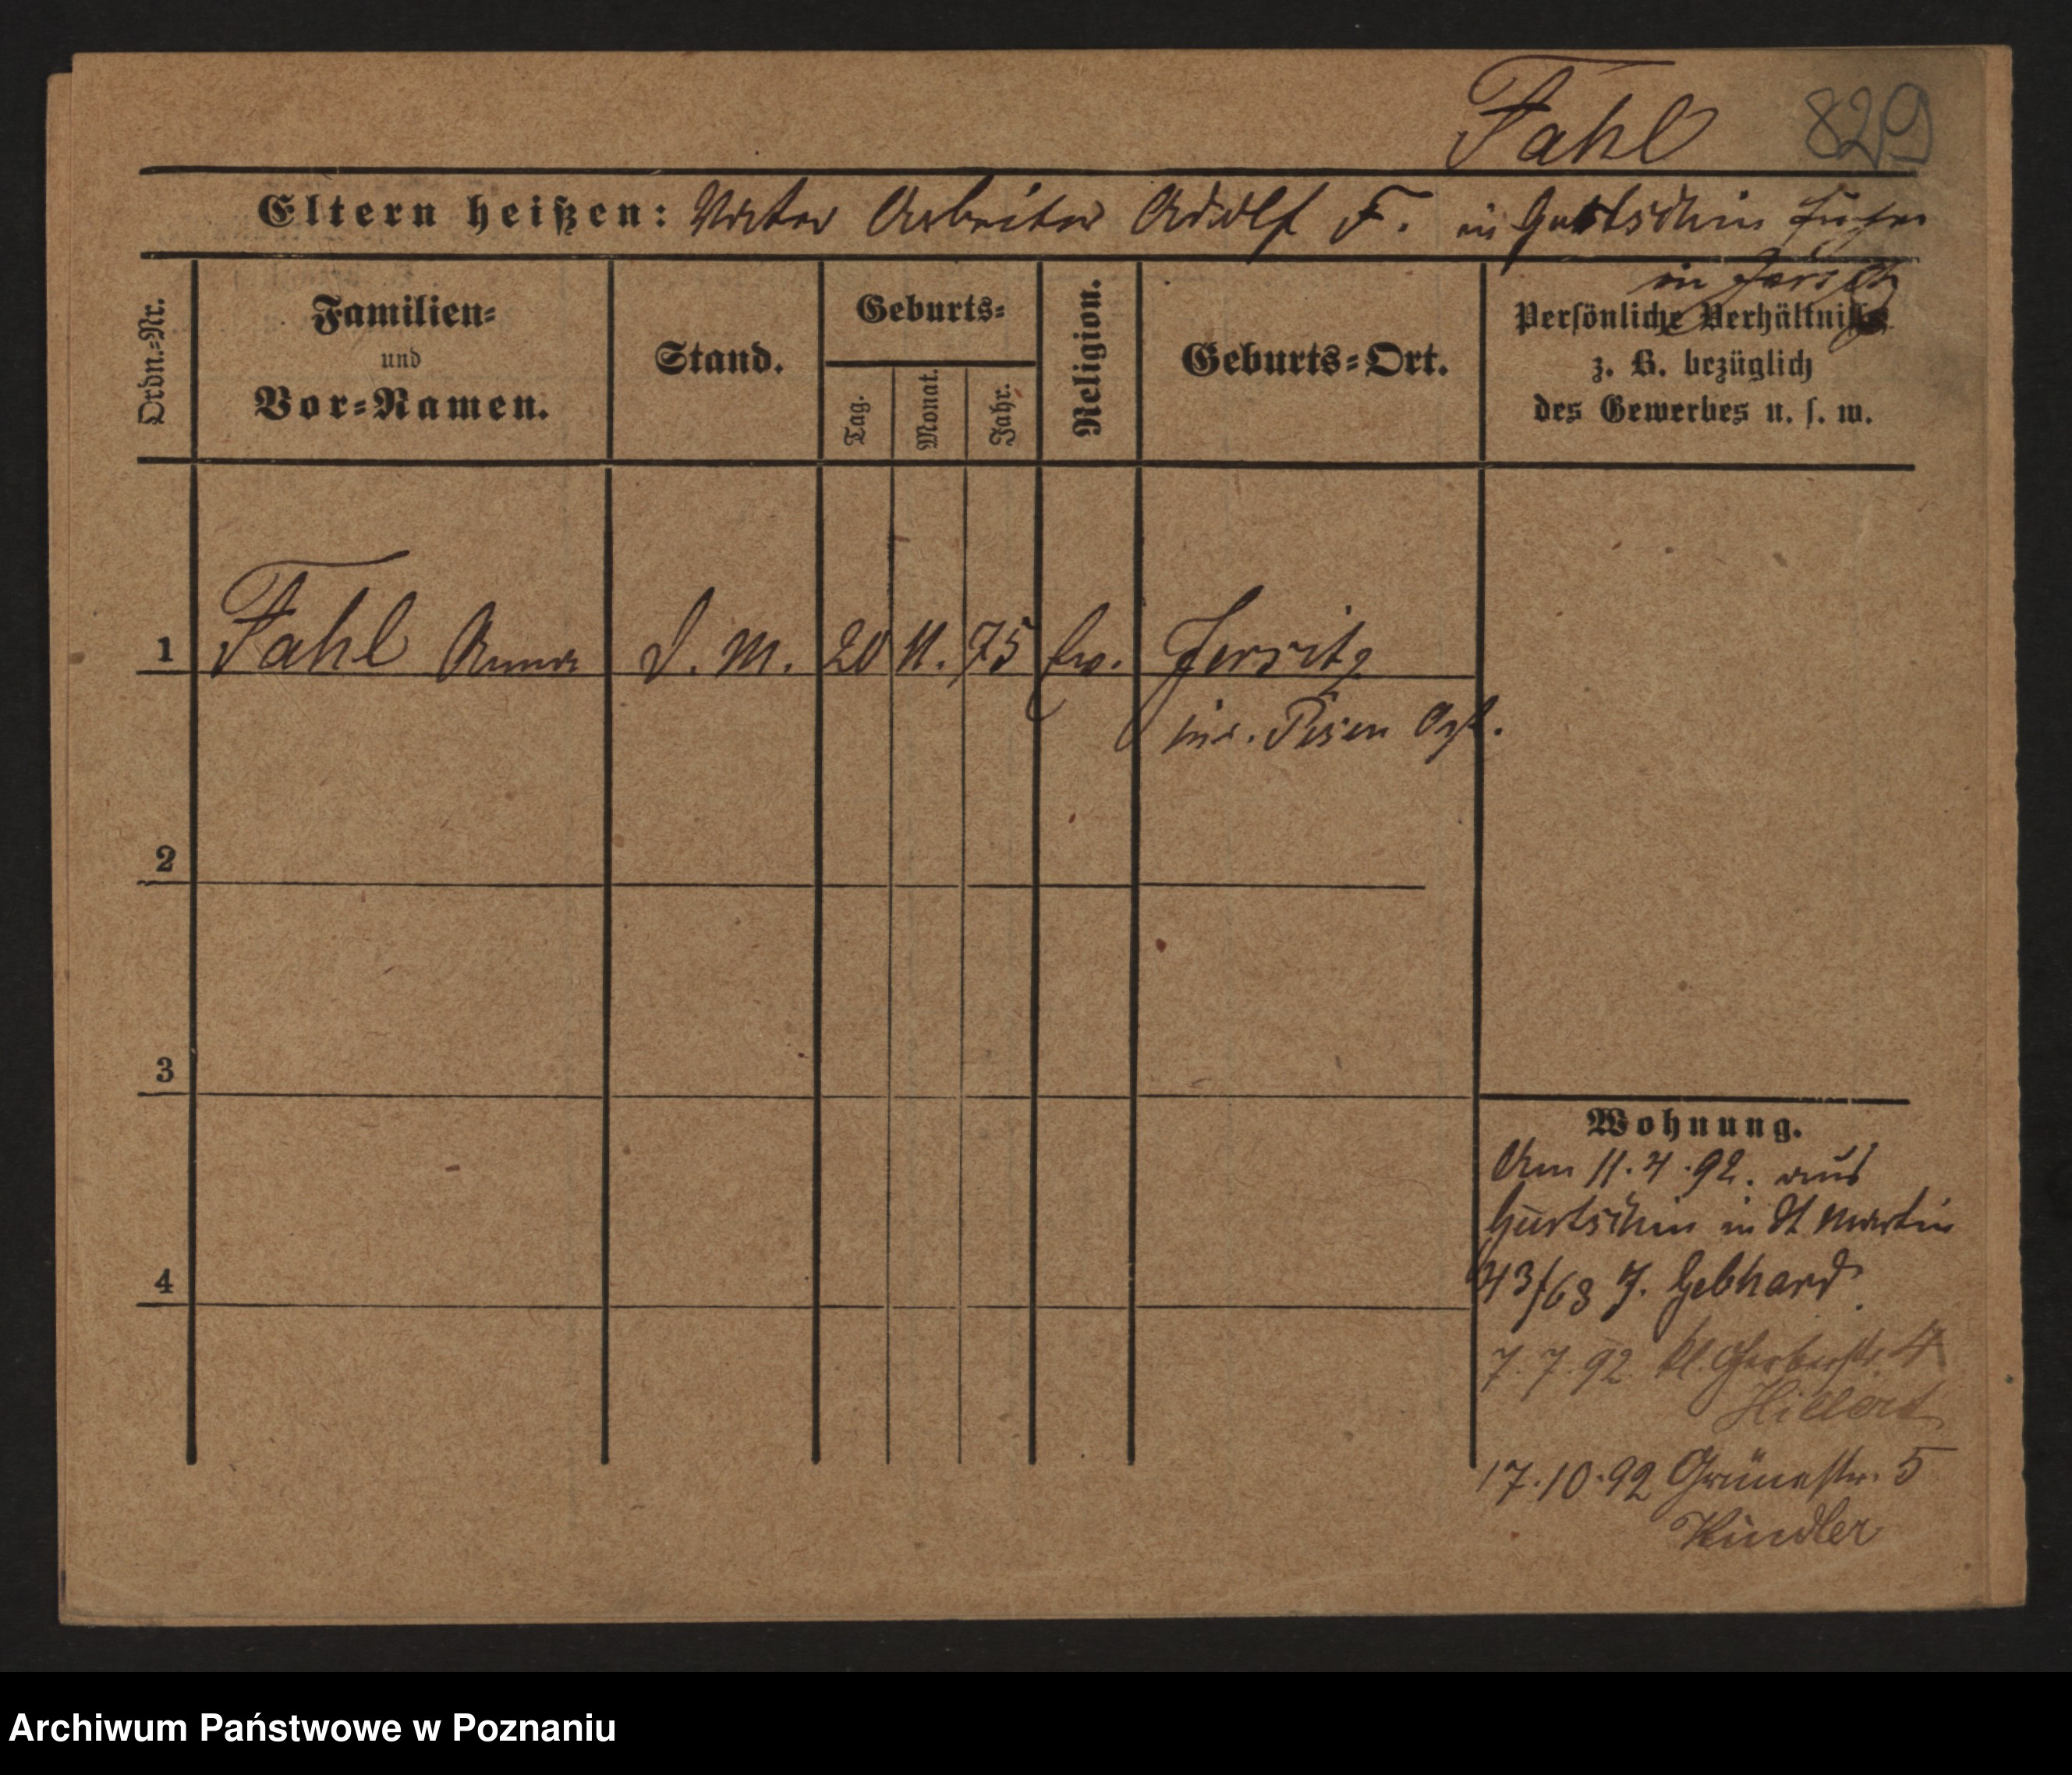 Fahl 829
Eltern heißen: Vater Arbeiter Adolf F. in Gurtschin früher
in Jersitz
Ordn.-Nr.
Familien-
und
Vor-Namen.
Stand.
Geburts-
Tag.
Monat.
Jahr.
Religion.
Geburts-Ort.
Persönliche Verhältnisse
z. B. bezüglich
des Gewerbes u. s. w.
1 Fahl Anna D. M. 20 11. 75 Ev. Jersitz
Posen Ost.
2
3
4
Wohnung.
Am 11.4.92. aus
Gurtschin in St Martin
43/63 J. Gebhard
7.7.92. kl. Gerberstr. 4
Hillert
17.10.92 Grünestr. 5
Kindler
Archiwum Państwowe w Poznaniu